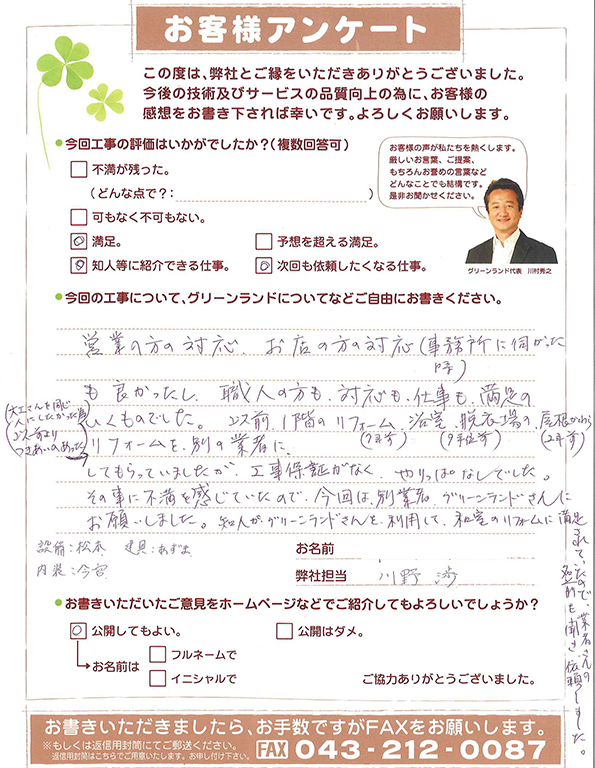 お客様アンケート
この度は、弊社とご縁をいただきありがとうございました。
今後の技術及びサービスの品質向上の為に、お客様の
感想をお書き下されば幸いです。よろしくお願いします。
●今回工事の評価はいかがでしたか？(複数回答可)
不満が残った。
(どんな点で？: )
可もなく不可もない。
満足。
予想を超える満足。
知人等に紹介できる仕事。
次回も依頼したくなる仕事。
お客様の声が私たちを熱くします。
厳しいお言葉、ご提案、
もちろんお誉めの言葉など
どんなことでも結構です。
是非お聞かせください。
グリーンランド代表 川村秀之
●今回の工事について、グリーンランドについてなどご自由にお書きください。
営業の方の対応、お店の方の対応(事務所に伺がった
時)
も良かったし、職人の方も、対応も、仕事も、満足の
いくものでした。以前、1階のリフォーム、浴室、脱衣場の、屋根がわら
(7年前) (9年位前) (2年前)
(大工さんを同じ
人にしたかった為
以前より
つきあいのあった)
リフォームを、別の業者に、
してもらっていましたが、工事保証がなく、やりっぱなしでした。
その事に不満を感じていたので、今回は、別業者、グリーンランドさんに
お願いしました。知人が、グリーンランドさんを、利用して、和室のリフォームに満足
されていたので、業者さんの
名前を聞き、依頼しました。
設備:松本 建具:あずま
内装:今宮
お名前
弊社担当 川野 渉
●お書きいただいたご意見をホームページなどでご紹介してもよろしいでしょうか？
公開してもよい。
公開はダメ。
お名前は
フルネームで
イニシャルで
ご協力ありがとうございました。
お書きいただきましたら、お手数ですがFAXをお願いします。
※もしくは返信用封筒にてご郵送ください。
返信用封筒はこちらでご用意いたします。お申し付け下さい。
FAX 043-212-0087